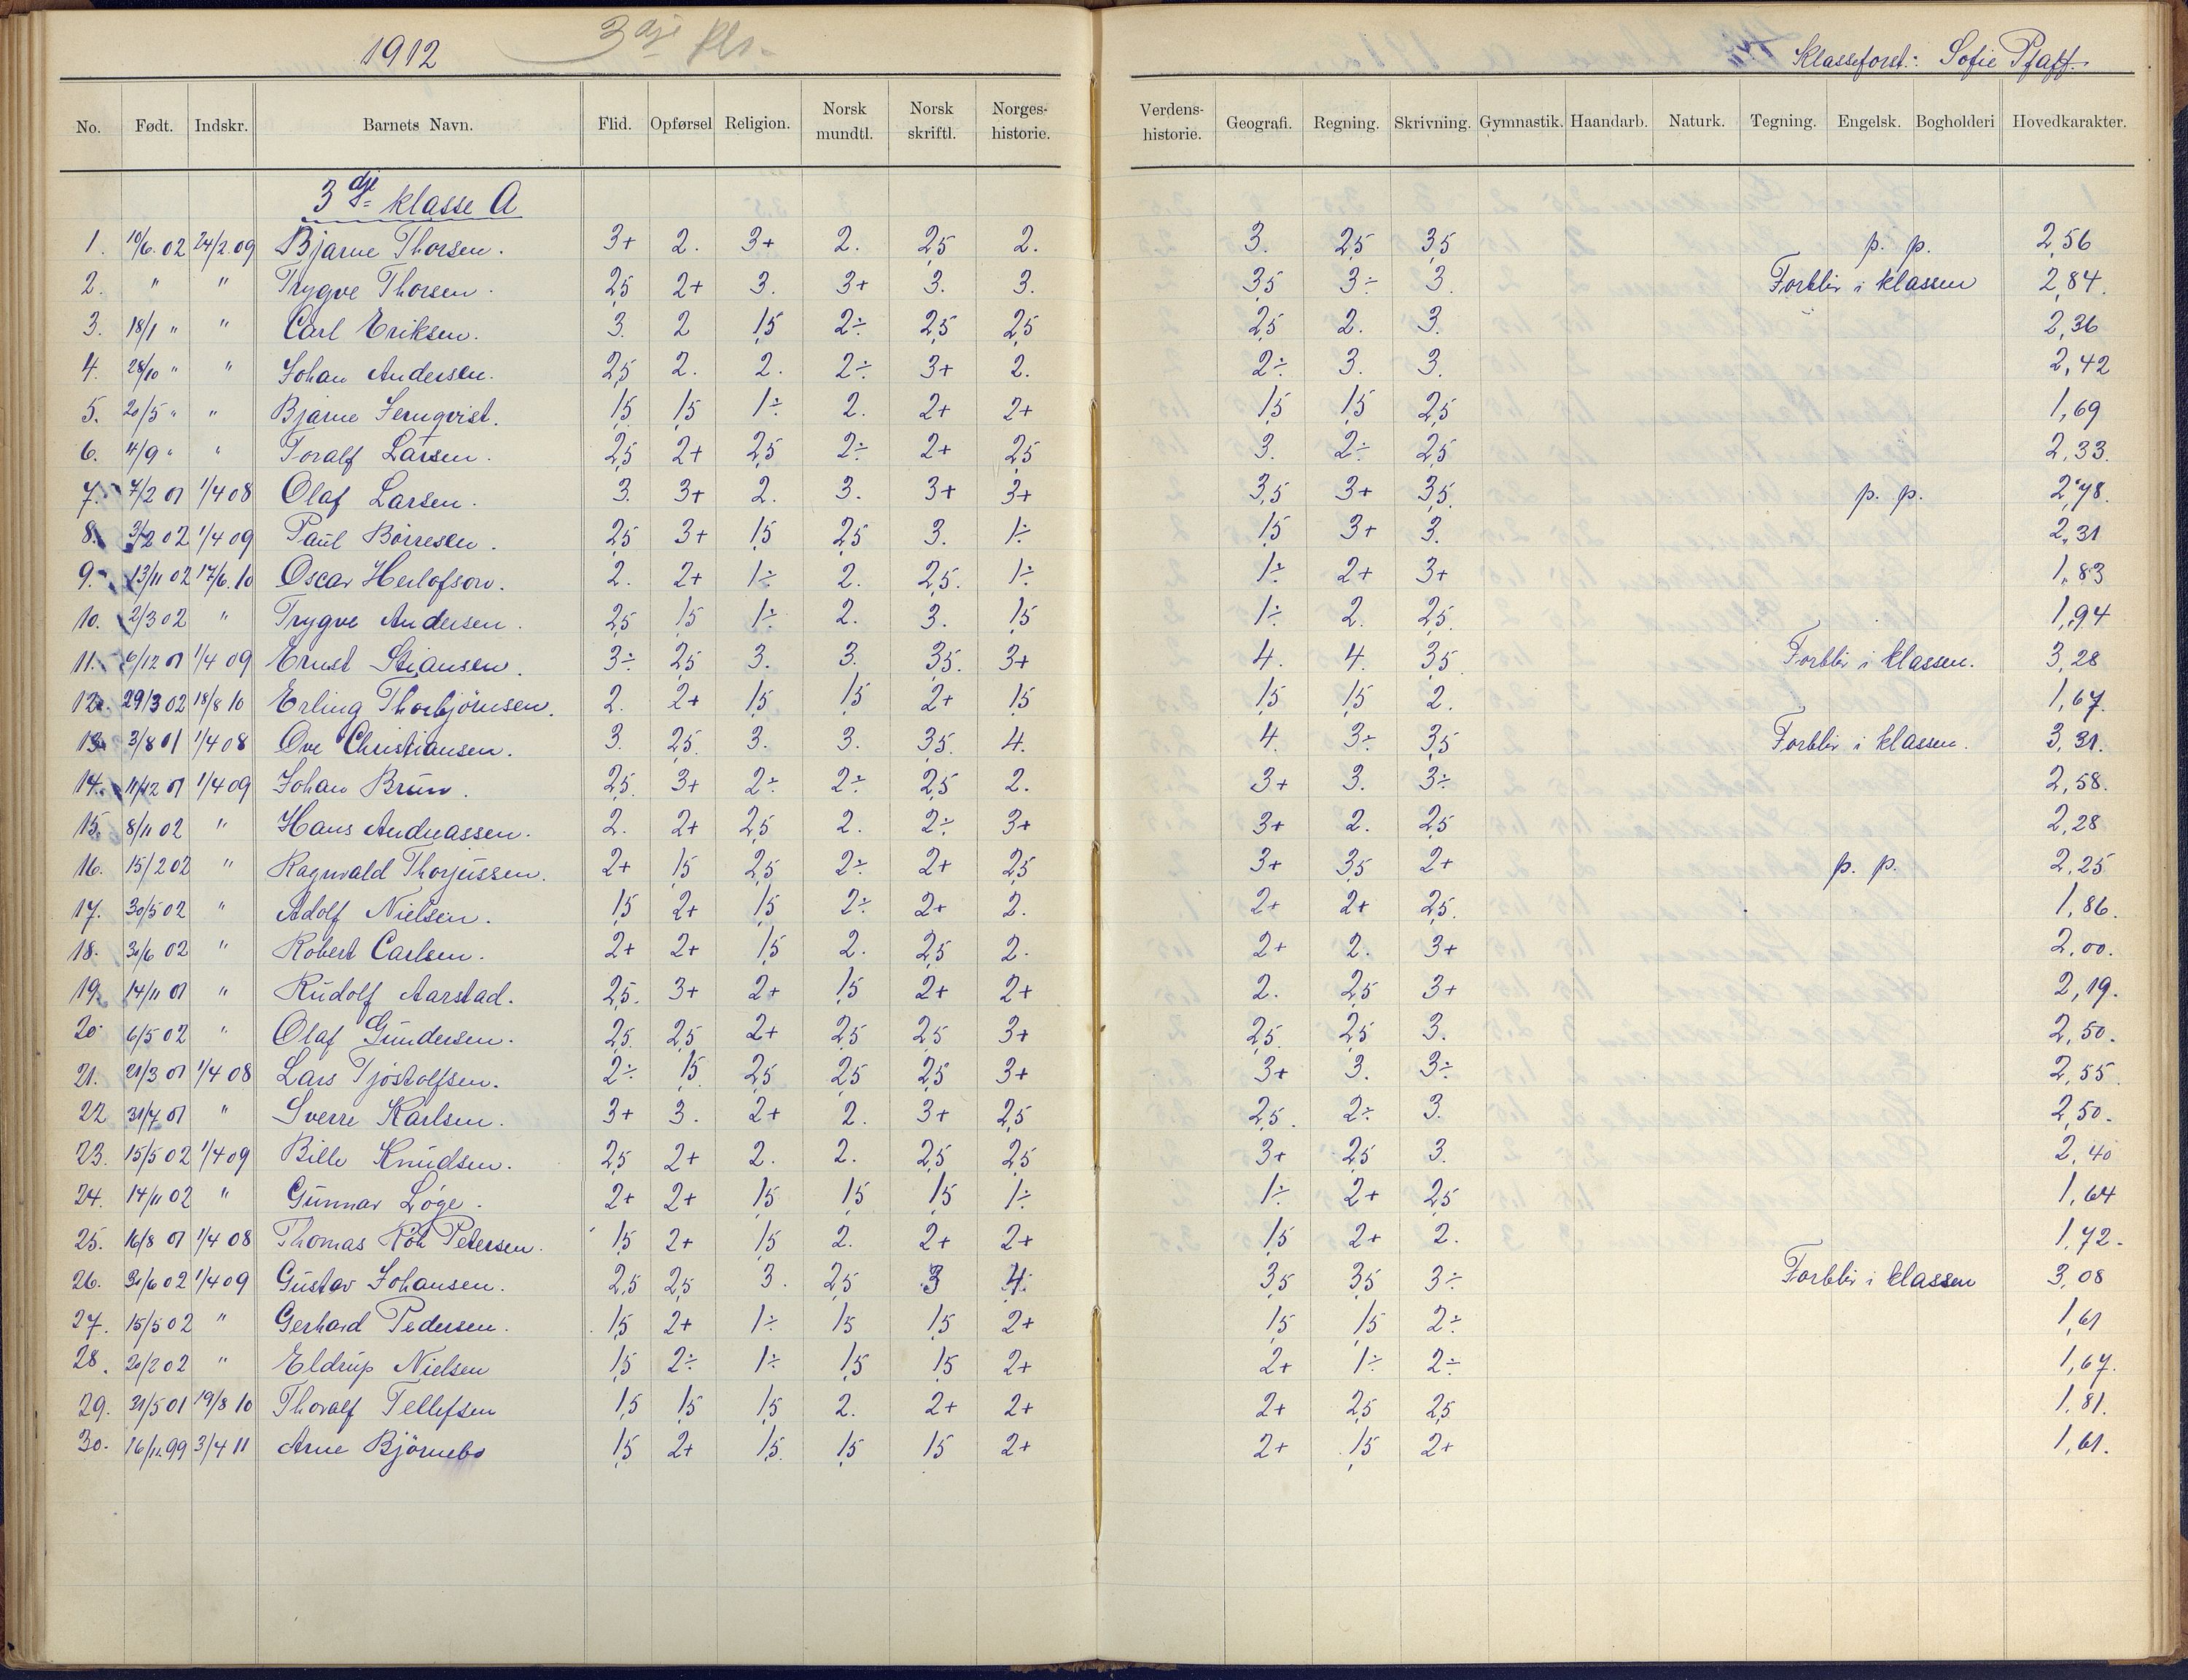 1912 3dje Kls. Klasseforst.: Sofie Pfaff.
No. Født. Indskr. Barnets Navn. Flid. Opførsel Religion. Norsk mundtl. Norsk skriftl. Norges-historie. Verdens-historie. Geografi. Regning. Skrivning. Gymnastik. Haandarb. Naturk. Tegning. Engelsk. Bogholderi Hovedkarakter.
3dje klasse A
1. 10/6. 02 24/2.09 Bjarne Thorsen. 3+ 2. 3+ 2. 2,5 2. 3. 2,5 3,5 p. p. 2,56
2. " " Trygve Thorsen. 2,5 2+ 3. 3+ 3. 3. 3,5 3÷ 3. Forblir i klassen 2,84.
3. 18/1 " " Carl Eriksen. 3. 2 1,5 2÷ 2,5 2,5 2,5 2. 3. 2,36
4. 28/10 " " Johan Andersen. 2,5 2. 2. 2÷ 3+ 2. 2÷ 3. 3. 2,42
5. 20/5 " " Bjarne Fernqvist. 1,5 1,5 1÷ 2. 2+ 2+ 1,5 1,5 2,5 1,69
6. 4/9 " " Toralf Larsen. 2,5 2+ 2,5 2÷ 2+ 2,5 3. 2÷ 2,5 2,33.
7. 7/2 01 1/4 08 Olaf Larsen. 3. 3+ 2. 3. 3+ 3+ 3,5 3+ 3,5. p. p. 2,78.
8. 3/2 02 1/4 09 Paul Börresen. 2,5 3+ 1,5 2,5 3. 1÷ 1,5 3+ 3. 2,31
9. 13/11 02 17/6. 10 Oscar Herlofson. 2. 2+ 1÷ 2. 2,5. 1÷ 1÷ 2+ 3+ 1,83
10. 2/3 02 " Trygve Andersen. 2,5 1,5 1÷ 2. 3. 1,5 1÷ 2. 2,5. 1,94
11. 6/12 01 1/4 09 Ernst Stiansen. 3÷ 2,5 3. 3. 3,5. 3+ 4. 4. 3,5 Forblir i klassen. 3,28
12. 29/3 02 18/8 10 Erling Thorbjörnsen. 2. 2+ 1,5 1,5 2+ 1,5 1,5 1,5 2. 1,67.
13. 3/8 01 1/4 08 Ove Christiansen. 3. 2,5. 3. 3. 3,5. 4. 4. 3÷ 3,5 Forblir i klassen. 3,31.
14. 11/12 01 1/4 09 Johan Brun. 2,5. 3+ 2÷ 2÷ 2,5 2. 3+ 3. 3÷ 2,58.
15. 8/11 02 " Hans Andreassen. 2. 2+ 2,5 2. 2÷ 3+ 3+ 2. 2,5 2,28
16. 15/2 02 " Ragnvald Thorjussen. 2+ 1,5 2,5 2÷ 2+ 2,5 3+ 3,5 2+ p. p. 2,25
17. 30/5 02 " Adolf Nielsen. 1,5 2+ 1,5 2÷ 2+ 2. 2+ 2+ 2,5. 1,86.
18. 30/6 02 " Robert Carlsen. 2+ 2+ 1,5 2. 2,5 2. 2+ 2. 3+ 2,00.
19. 14/11 01 " Rudolf Aarstad. 2,5. 3+ 2+ 1,5 2+ 2+ 2. 2,5 3+ 2,19.
20. 6/5 02 " Olaf Gundersen. 2,5. 2,5 2+ 2,5 2,5 3+ 2,5. 2,5 3. 2,50.
21. 21/3 01 1/4 08 Lars Tjöstolfsen. 2÷ 1,5 2,5 2,5 2,5 3+ 3+ 3. 3÷ 2,55
22 31/7 01 " Sverre Karlsen. 3+ 3. 2+ 2. 3+ 2,5 2,5. 2÷ 3. 2,50.
23. 15/5 02 1/4 09 Bille Knudsen. 2,5 2+ 2. 2. 2,5 2,5 3+ 2,5 3. 2,40
24. 14/11 02 " Gunnar Löge. 2+ 2+ 1,5 1,5 1,5 1÷ 1÷ 2+ 2,5 1,64
25. 16/8 01 1/4 08 Thomas Petersen. 1,5 2+ 1,5 2. 2+ 2+ 1,5 2+ 2. 1,72.
26. 30/6 02 1/4 09 Gustav Johansen. 2,5 2,5 3. 2,5 3 4. 3,5 3,5 3÷ Forblir i klassen 3,08
27. 15/5 02 " Gerhard Pedersen. 1,5 2+ 1÷ 1,5 1,5 2+ 1,5 1,5 2÷ 1,61
28. 20/2 02 " Eldrup Nielsen 1,5 2÷ 1÷ 1,5 1,5 2+ 2+ 1÷ 2÷ 1,67.
29. 31/5 01 19/8 10 Thoralf Tellefsen 1,5 1,5 1,5 2. 2+ 2+ 2+ 2,5 2,5 1,81.
30. 16/12.99 3/4 11 Arne Björnebo 1,5 2+ 1,5. 1,5 1,5 2+ 2+ 1,5 2+ 1,61.